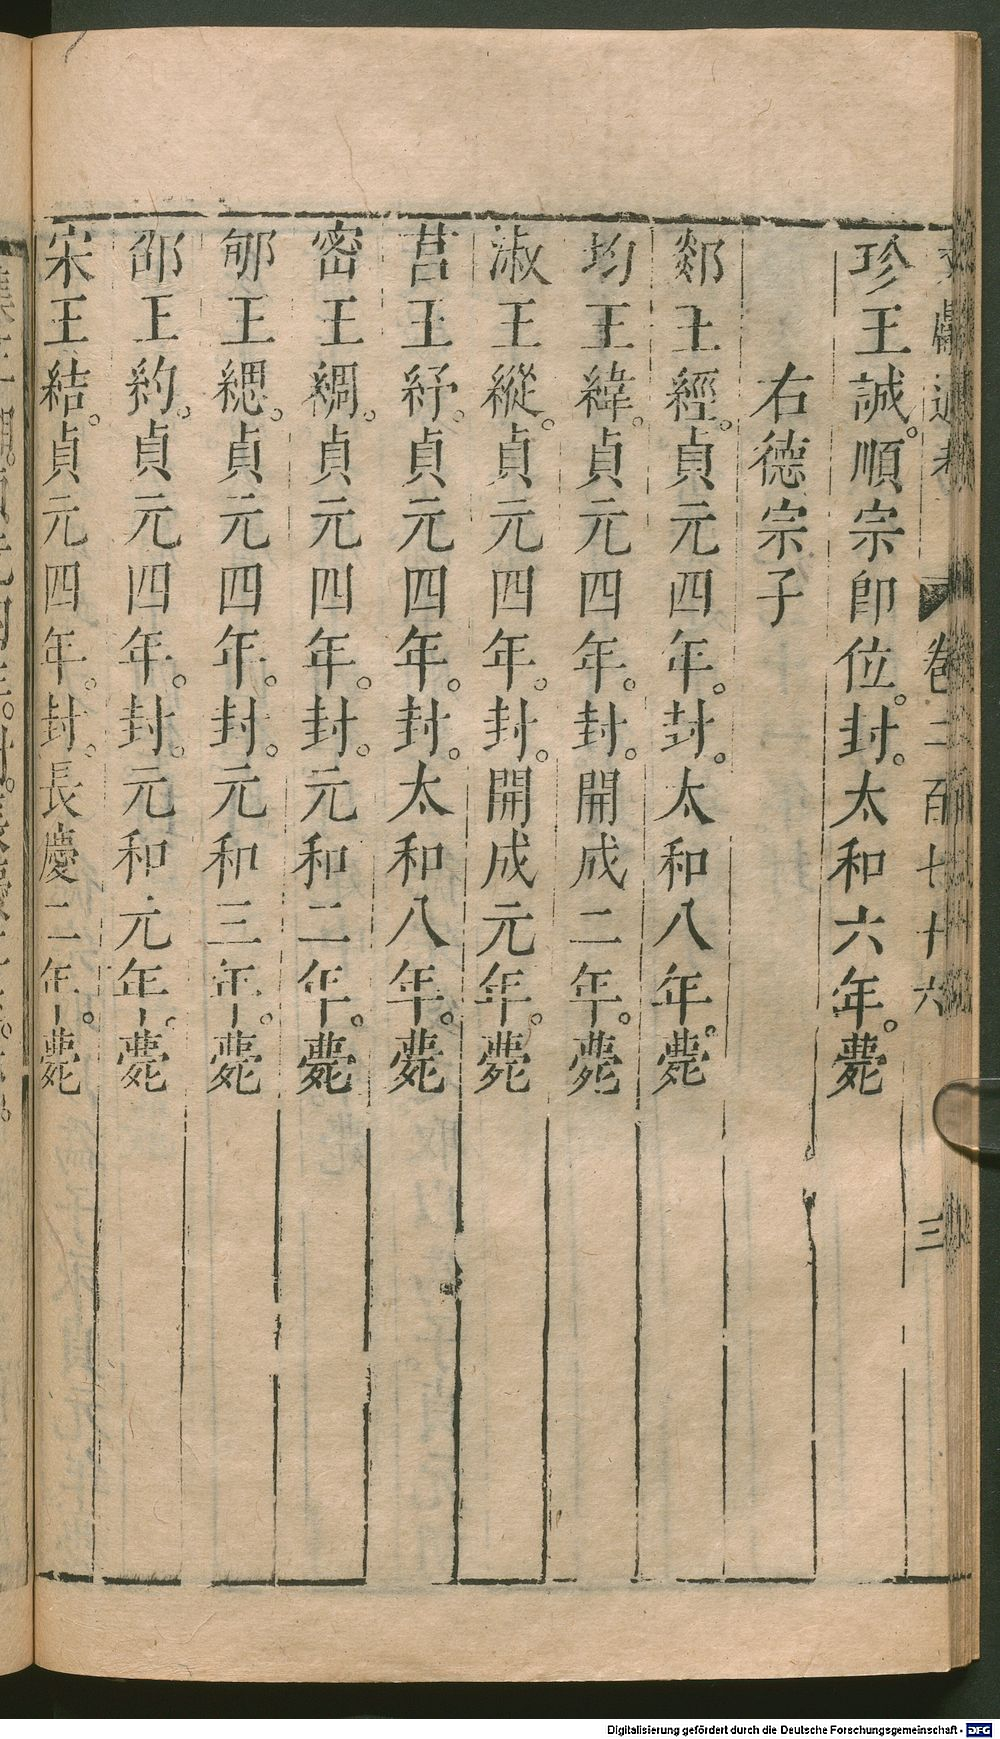 文獻通考 卷二百七十六 三
珍王誠。順宗卽位。封。太和六年。薨
右德宗子
郯王經。貞元四年。封。太和八年。薨
均王緯。貞元四年。封。開成二年。薨
溆王縱。貞元四年。封。開成元年。薨
莒王紓。貞元四年。封。太和八年。薨
密王綢。貞元四年。封。元和二年。薨
郇王緦。貞元四年。封。元和三年。薨
邵王約。貞元四年。封。元和元年。薨
宋王結。貞元四年。封。長慶二年。薨
Digitalisierung gefördert durch die Deutsche Forschungsgemeinschaft - DFG